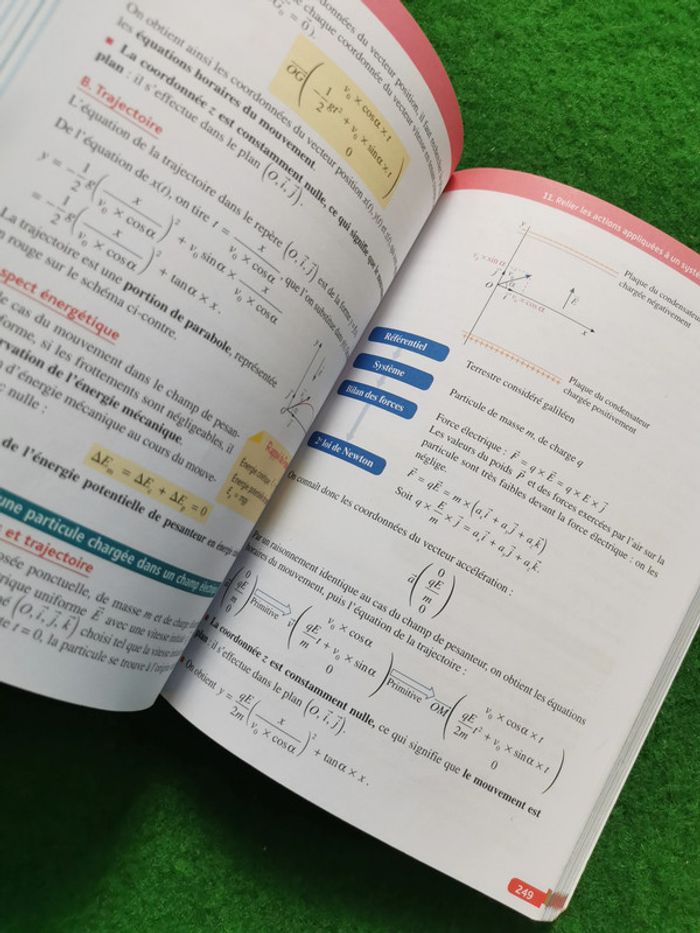 données du vecteur position, il faut
chaque coordonnée du vecteur vitesse en
G₀ = 0).
On obtient ainsi les coordonnées du vecteur position x(t), y(t) et
les équations horaires du mouvement.
OG ( v₀ × cosα × t
- 1/2 gt² + v₀ × sinα × t
0 )
■ La coordonnée z est constamment nulle, ce qui signifie que le
plan : il s'effectue dans le plan (O, i, j).
B. Trajectoire
L'équation de la trajectoire dans le repère (O, i, j) est de la forme
De l'équation de x(t), on tire t = x / (v₀ × cosα), que l'on substitue dans
y = - 1/2 g ( x / (v₀ × cosα) )² + v₀ sinα × x / (v₀ × cosα)
= - 1/2 g ( x / (v₀ × cosα) )² + tanα × x.
La trajectoire est une portion de parabole, représentée
n rouge sur le schéma ci-contre.
spect énergétique
e cas du mouvement dans le champ de pesan-
forme, si les frottements sont négligeables, il
rvation de l'énergie mécanique.
n d'énergie mécanique au cours du mouve-
nulle :
ΔEm = ΔEc + ΔEp = 0
de l'énergie potentielle de pesanteur en énergie
une particule chargée dans un champ
s et trajectoire
osée ponctuelle, de masse m et de charge
rique uniforme E avec une vitesse
é (O, i, j, k) choisi tel que la vitesse
te t = 0, la particule se trouve à l'origine
11. Relier les actions appliquées à un systè
y
v₀ × sin α
j
O
i
α
v₀ × cos α
E
x
Plaque du condensateur
chargée négativement
Plaque du condensateur
chargée positivement
Référentiel
Terrestre considéré galiléen
Système
Particule de masse m, de charge q
Bilan des forces
Force électrique : F = q × E = q × E × j
Les valeurs du poids P et des forces exercées par l'air sur la
particule sont très faibles devant la force électrique : on les
néglige.
2e loi de Newton
F = qE = m × (aₓi + aᵧj + a_zk)
Soit q × E/m × j = aₓi + aᵧj + a_zk.
On connaît donc les coordonnées du vecteur accélération :
a ( 0
qE/m
0 )
Par un raisonnement identique au cas du champ de pesanteur, on obtient les équations
horaires du mouvement, puis l'équation de la trajectoire :
a ( 0
qE/m
0 ) Primitive v ( v₀ × cosα
qE/m t + v₀ × sinα
0 ) Primitive OM ( v₀ × cosα × t
qE/2m t² + v₀ × sinα × t
0 )
■ La coordonnée z est constamment nulle, ce qui signifie que le mouvement est
plan : il s'effectue dans le plan (O, i, j).
■ On obtient y = qE/2m ( x / (v₀ × cosα) )² + tanα × x.
249